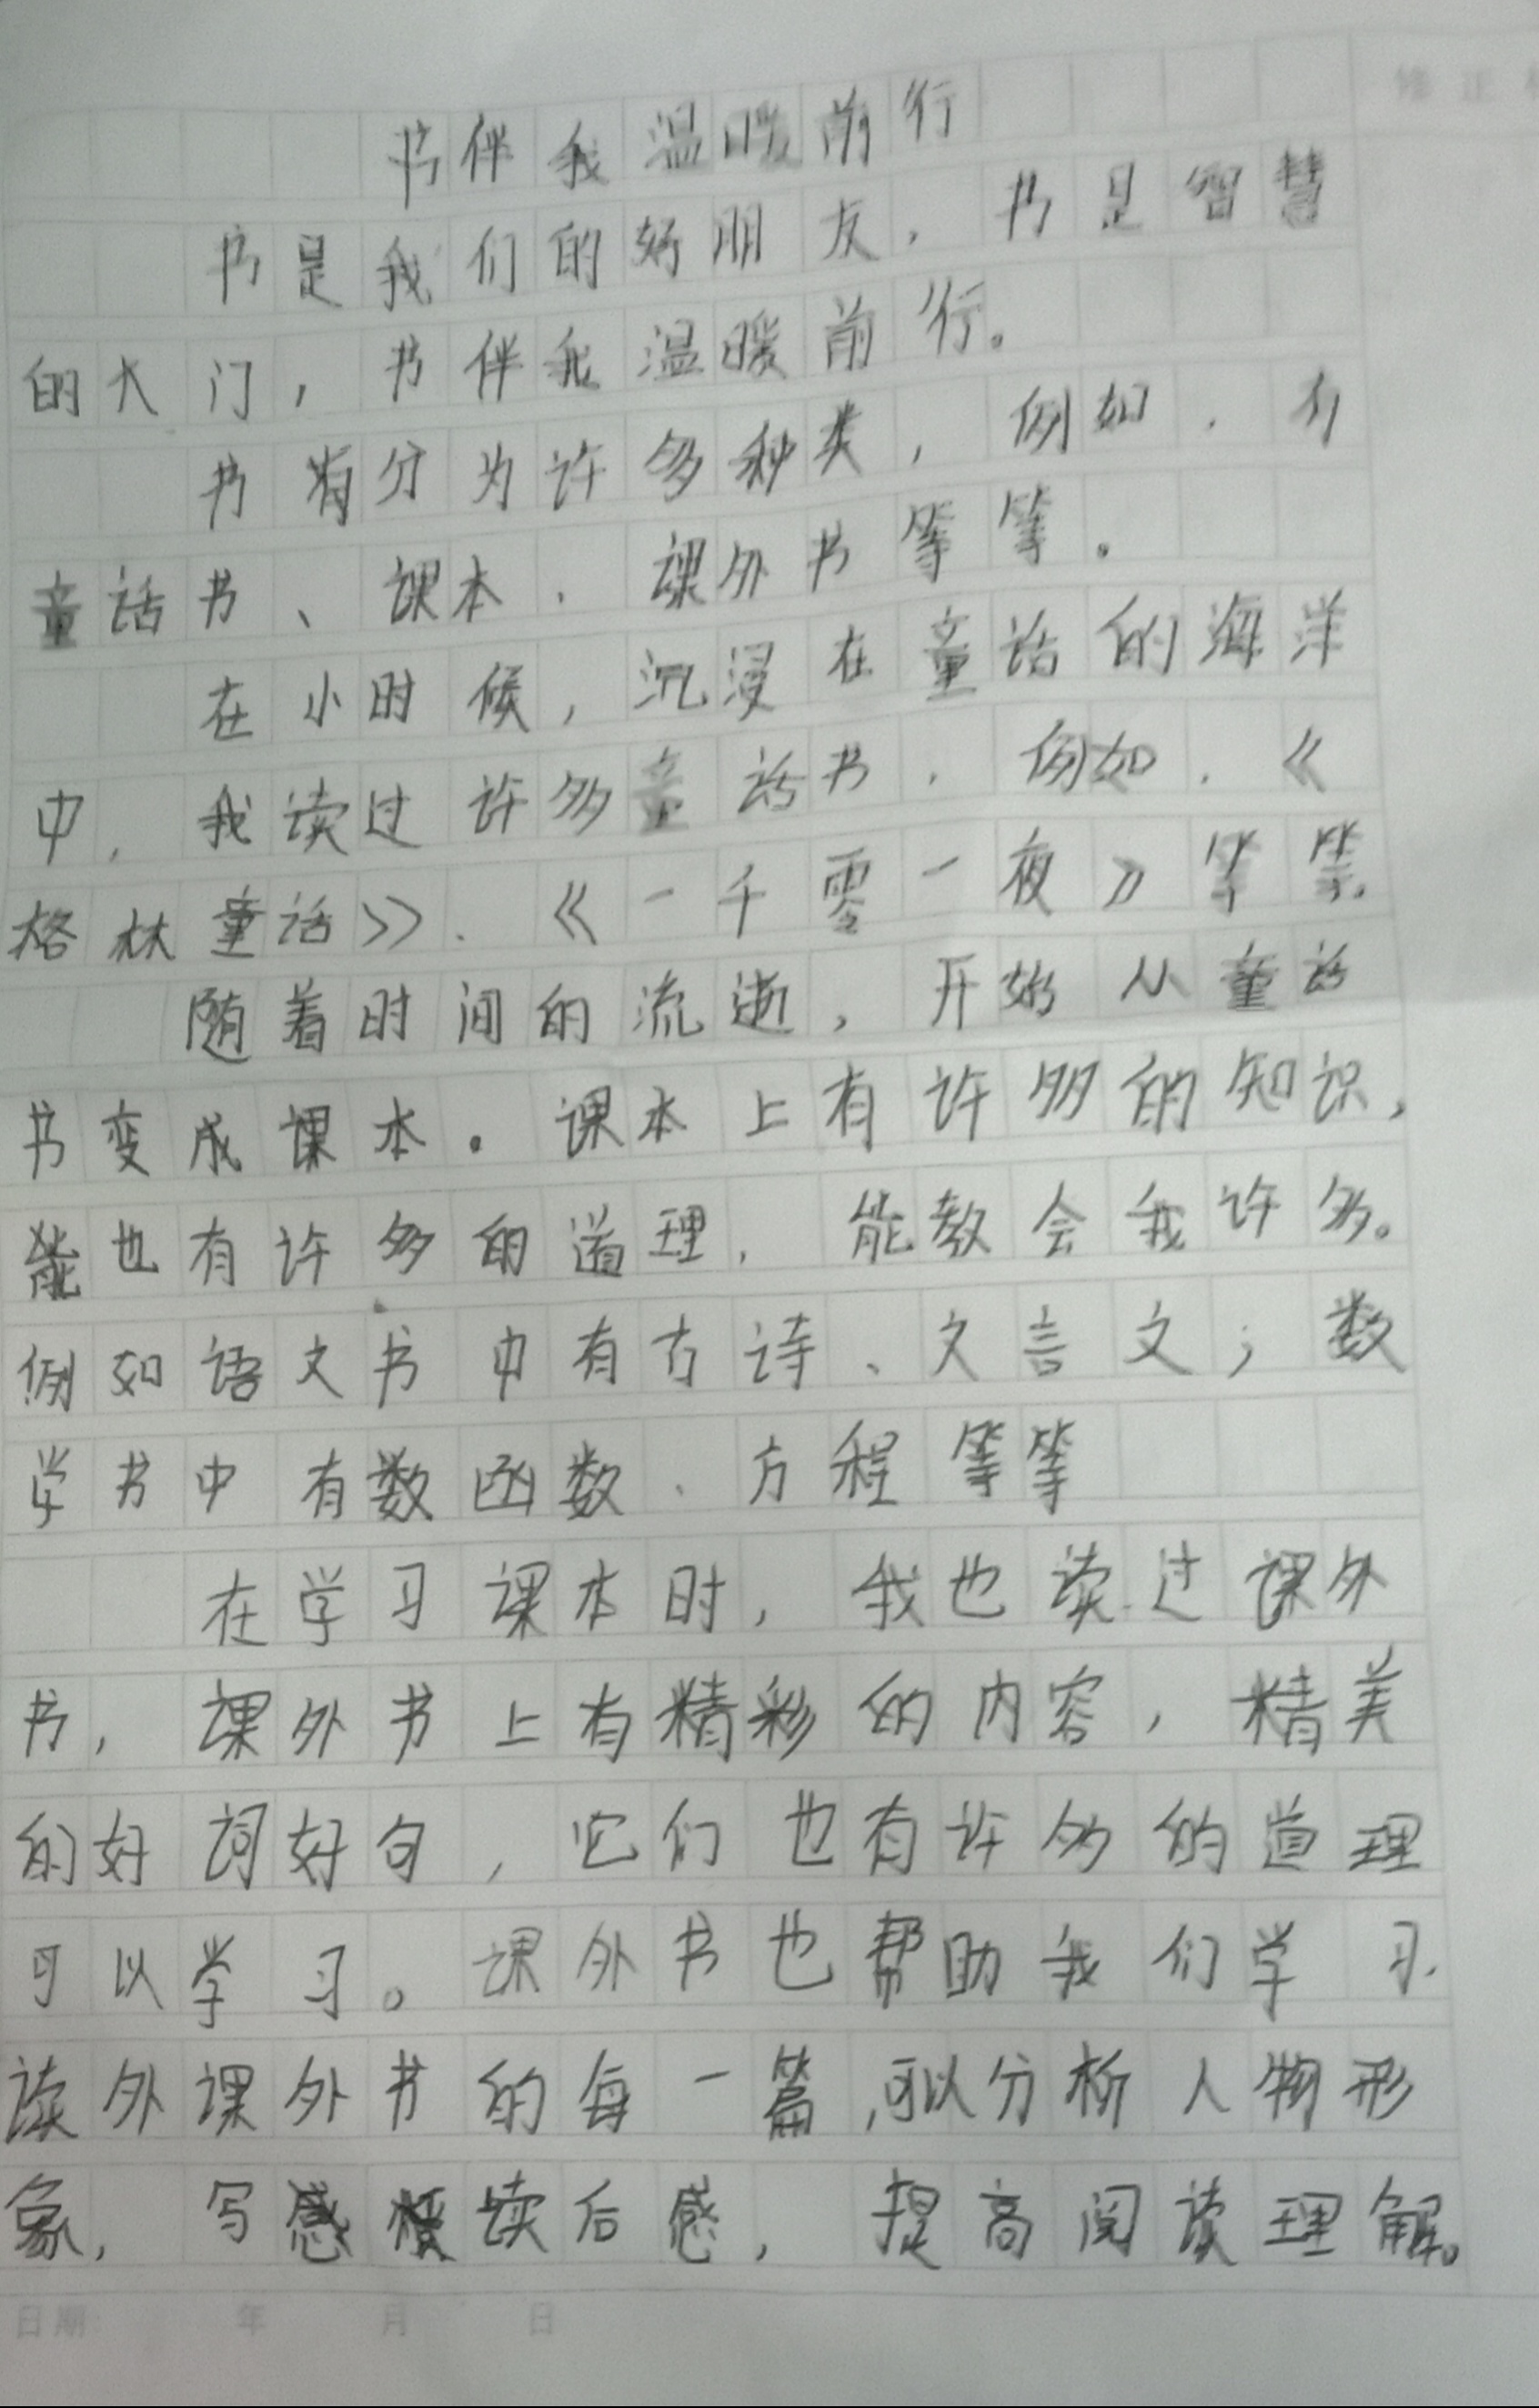 修正
书伴我温暖前行
书是我们的好朋友，书是智慧
的大门，书伴我温暖前行。
书有分为许多种类，例如，有
童话书、课本、课外书等等。
在小时候，沉浸在童话的海洋
中，我读过许多童话书，例如，《
格林童话》、《一千零一夜》等等。
随着时间的流逝，开始从童话
书变成课本。课本上有许多的知识，
能也有许多的道理，能教会我许多。
例如语文书中有古诗、文言文；数
学书中有数函数、方程等等
在学习课本时，我也读过课外
书，课外书上有精彩的内容，精美
的好词好句，它们也有许多的道理
可以学习。课外书也帮助我们学习.
读外课外书的每一篇，可以分析人物形
象，写感读后感，提高阅读理解。
日期 年 月 日